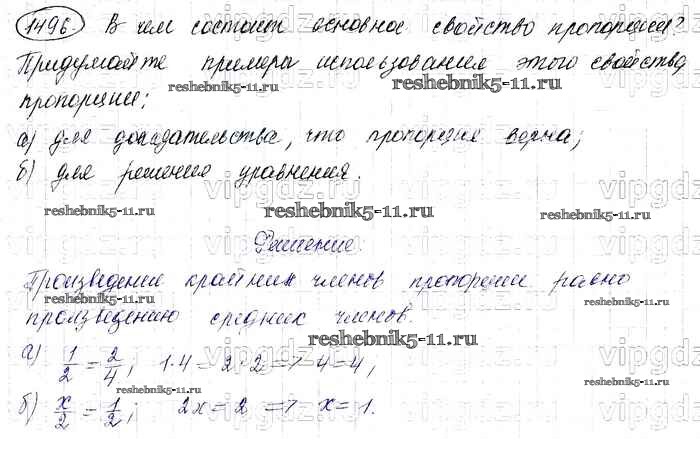 1496. В чем состоит основное свойство пропорции?
Придумайте примеры использования этого свойства
reshebnik5-11.ru reshebnik5-11.ru
пропорции:
а) для доказательства, что пропорция верна;
б) для решения уравнения.
vipgdz.ru
reshebnik5-11.ru reshebnik5-11.ru reshebnik5-11.ru
Решение:
Произведение крайних членов пропорции равно
reshebnik5-11.ru reshebnik5-11.ru
произведению средних членов.
reshebnik5-11.ru
а) 1/2 = 2/4; 1·4 = 2·2 => 4 = 4;
reshebnik5-11.ru reshebnik5-11.ru
б) x/2 = 1/2; 2x = 2 => x = 1.